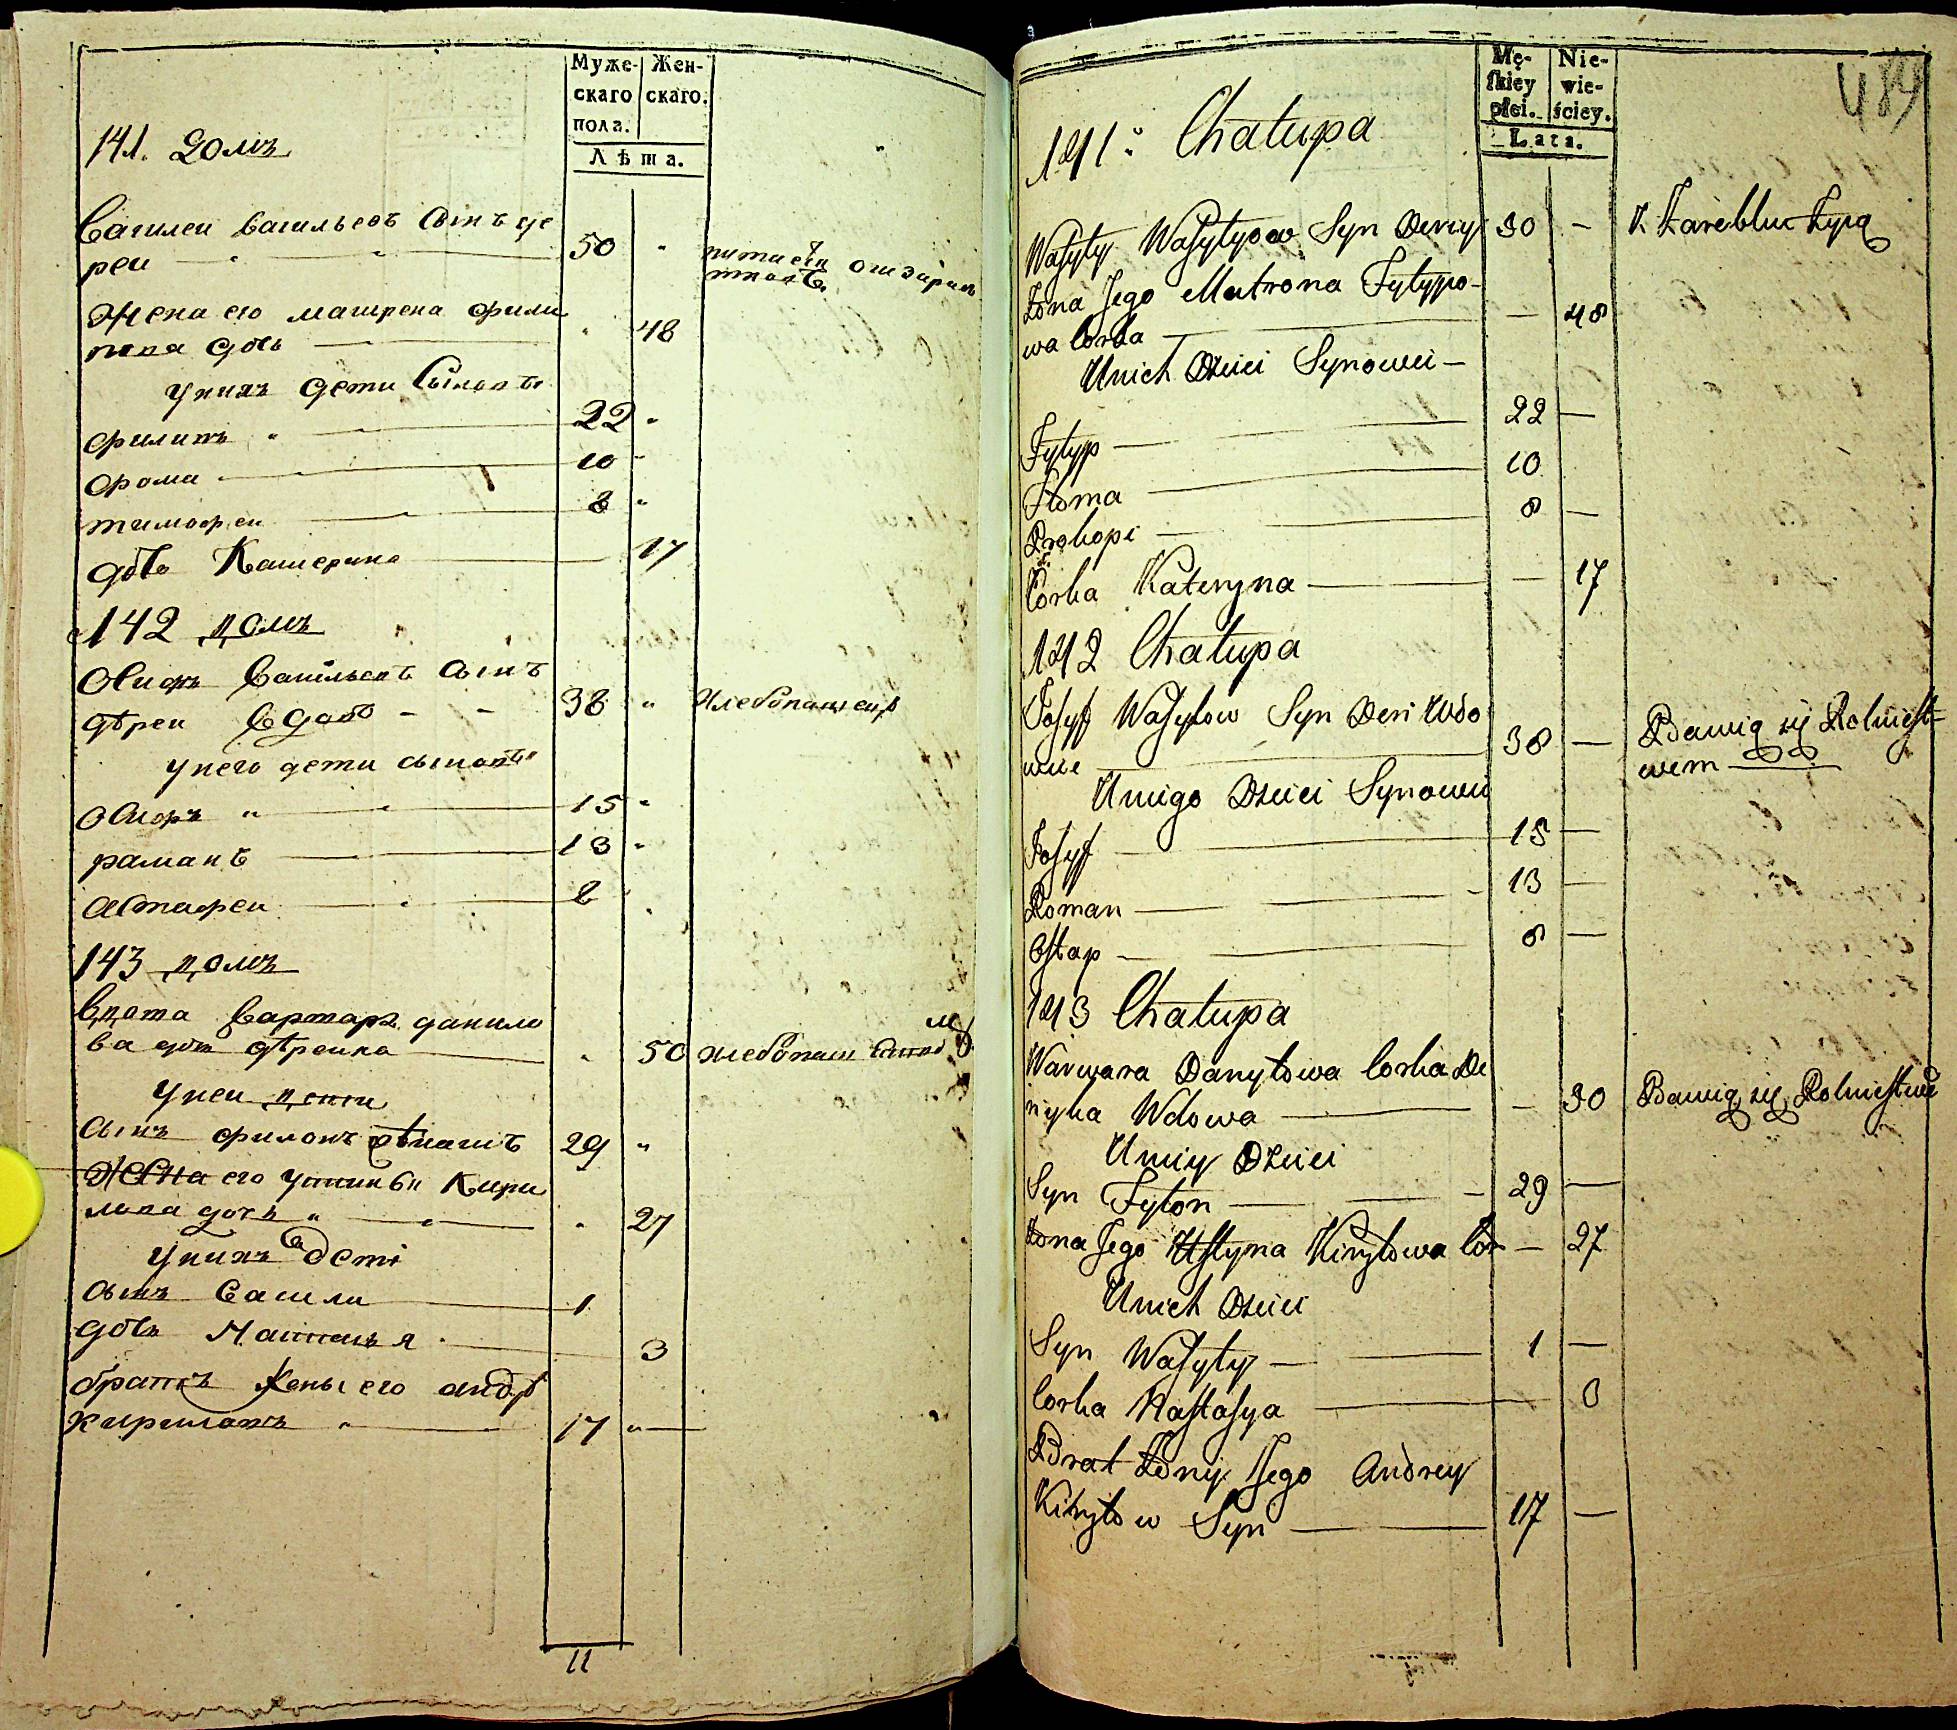 Муже-
скаго
пола.
Жен-
скаго.
Лѣта.
141. домъ
Василеи Васильевъ сынъ де
реи — 50
Жена его матрена фили
пова дочь — 48
у нихъ дети сыновъя
филипъ — 22
фома — 10
тимофеи — 8
дочь Катерина — 17
142 домъ
Осипъ Васильевъ сынъ
дѣреи вдовъ - - 38 хлебопашец
у него дети сыновъя
Осипъ — 15
раманъ — 13
Астафеи — 8
143 домъ
Вдова Варвара данило
ва дочь дѣреика — 50 хлебопаш
у неи дети
Сынъ филонъ 29
Жена его устинья Кири
лова дочь — 27
у нихъ дети
сынъ Васили — 1
дочь Настасья — 3
братъ жены его андрѣ
Кириловъ — 17
11
Mę-
skiey
płci.
Nie-
wie-
ściey.
Lata.
484
141: Chałupa
Wasyly Wasylyow Syn Deriy 50 —
Żona Jego Matrona Fylypo-
wa Corka — 48
Unich Dzieci Synowie —
Fylyp — 22 —
Homa — 10
Prokopi — 8 —
Corka Kateryna — 17
142 Chałupa
Josyf Wasylow Syn Deri Wdo
wiec — 38 — Bawią się Rolnict-
wem —
Uniego Dzieci Synowie
Josyf — 15 —
Roman — 13 —
Ostap — 8 —
143 Chałupa
Warwara Danyłowa Corka De
riyka Wdowa — 50 Bawią się Rolnictwe
Uniey Dzieci
Syn Fylon — 29 —
Żona Jego Ustyna Kiryłowa Cór — 27
Unich Dzieci
Syn Wasyly — 1 —
Corka Nastasya — 3
Brat Żony Jego Andrey
Kiryłow Syn — 17 —